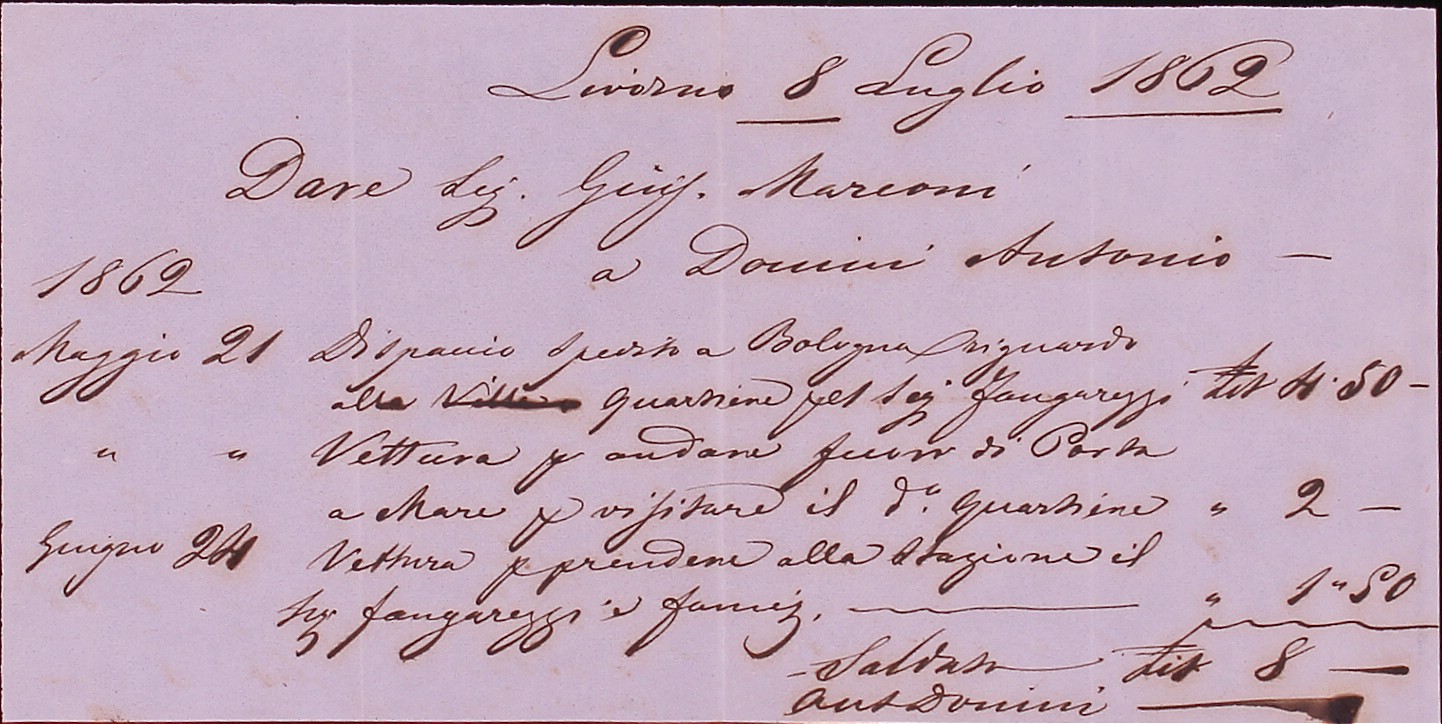 Livorno 8 Luglio 1862
Dare Sig. Giuſ. Marconi
a Donini Antonio —
1862
Maggio 21 Dispaccio spedito a Bologna riguardo
alla quartiere pel Sig Fangarezzi Lit 4.50 –
" " Vettura p andare fuori di Porta
a Mare p viſitare il d.º quartiere " 2 —
Giugno 24 Vettura p prendere alla Stazione il
Sig Fangarezzi e famig. — " 1"50
Saldato Lit 8 —
Ant Donini —